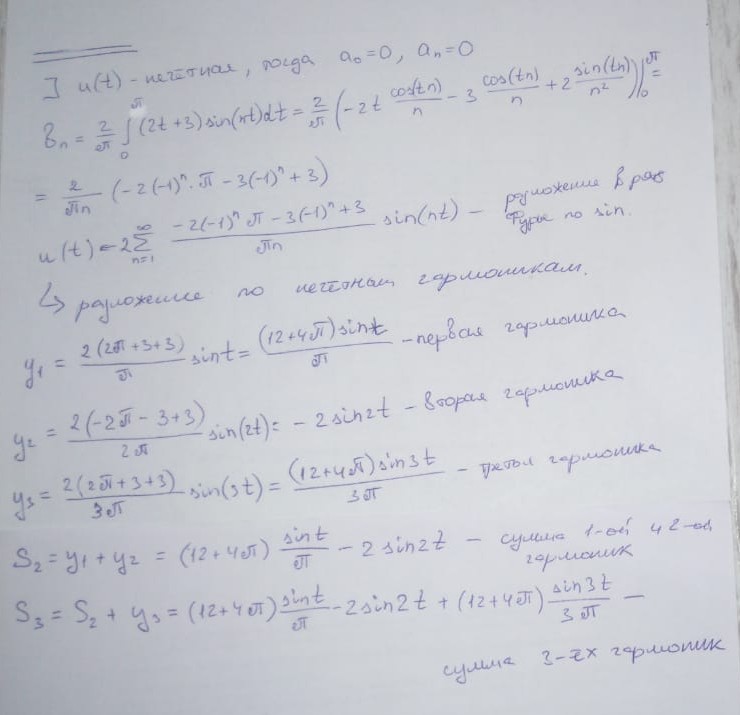 ] u(t) - нечётная, тогда a₀=0, aₙ=0
Bₙ = 2/π ∫₀^π (2t+3) sin(nt)dt = 2/π (-2t cos(tn)/n - 3 cos(tn)/n + 2 sin(tn)/n²)||₀^π =
= 2/(πn) (-2(-1)ⁿ·π - 3(-1)ⁿ + 3)
u(t) = 2 ∑_{n=1}^∞ (-2(-1)ⁿπ - 3(-1)ⁿ + 3)/(πn) sin(nt) - разложение в ряд Фурье по sin.
↳ разложение по нечётным гармоникам.
y₁ = 2(2π+3+3)/π sint = (12+4π)sint/π - первая гармоника
y₂ = 2(-2π-3+3)/2π sin(2t) = -2sin2t - вторая гармоника
y₃ = 2(2π+3+3)/3π sin(3t) = (12+4π)sin3t/3π - третья гармоника
S₂ = y₁ + y₂ = (12+4π) sint/π - 2sin2t - сумма 1-ой и 2-ой гармоник
S₃ = S₂ + y₃ = (12+4π) sint/π - 2sin2t + (12+4π) sin3t/3π -
сумма 3-ех гармоник